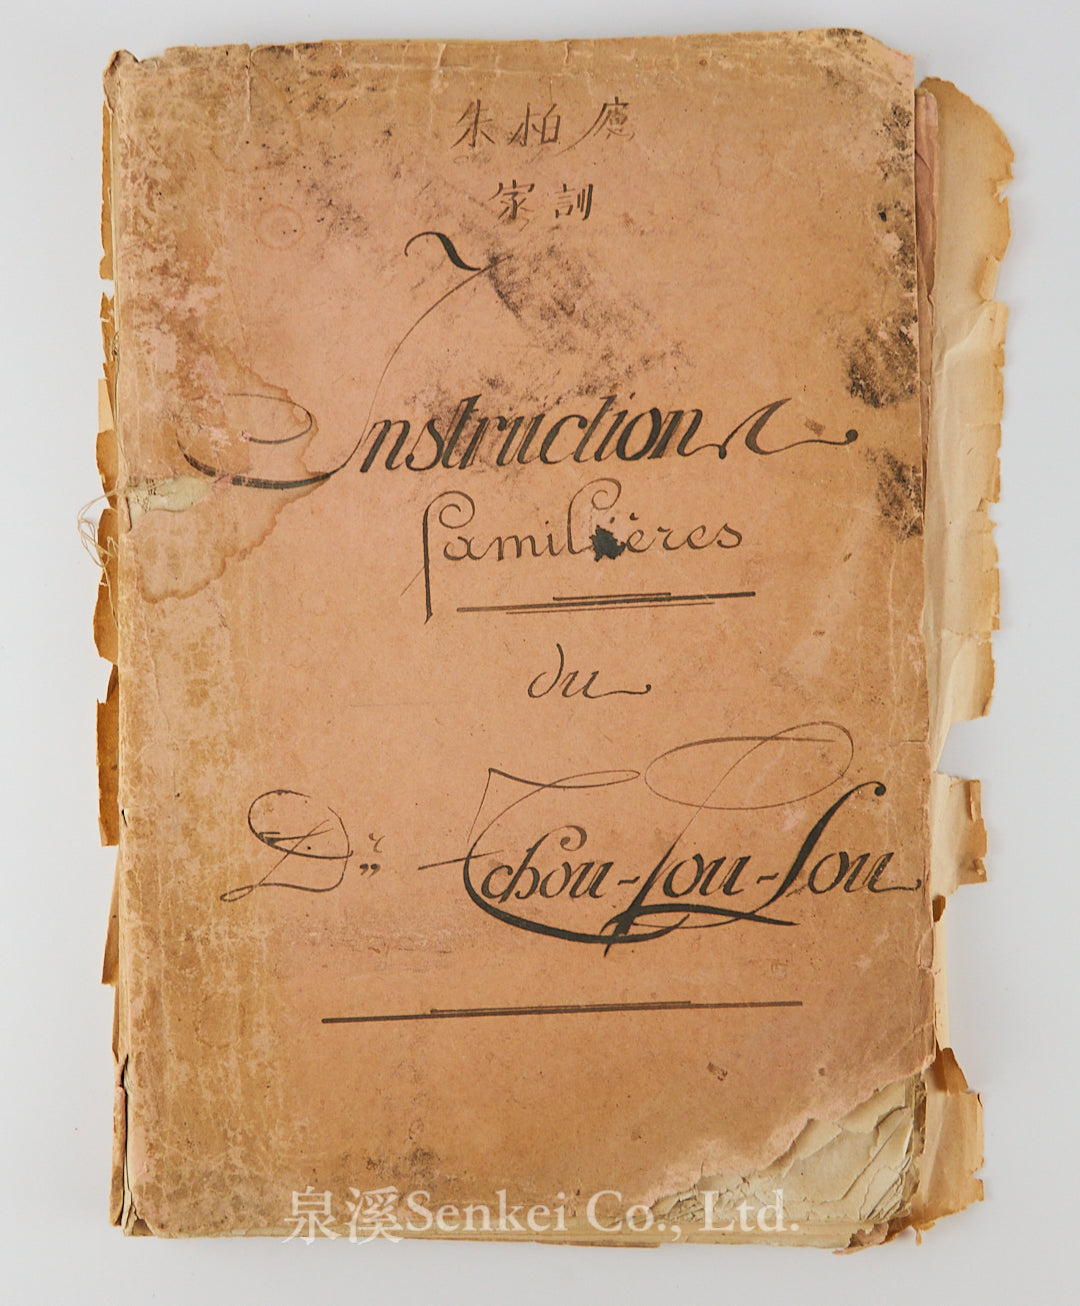 朱柏廬
家訓
Instructions
familières
du
Dr. Tchou-Pou-Lou
泉溪Senkei Co., Ltd.